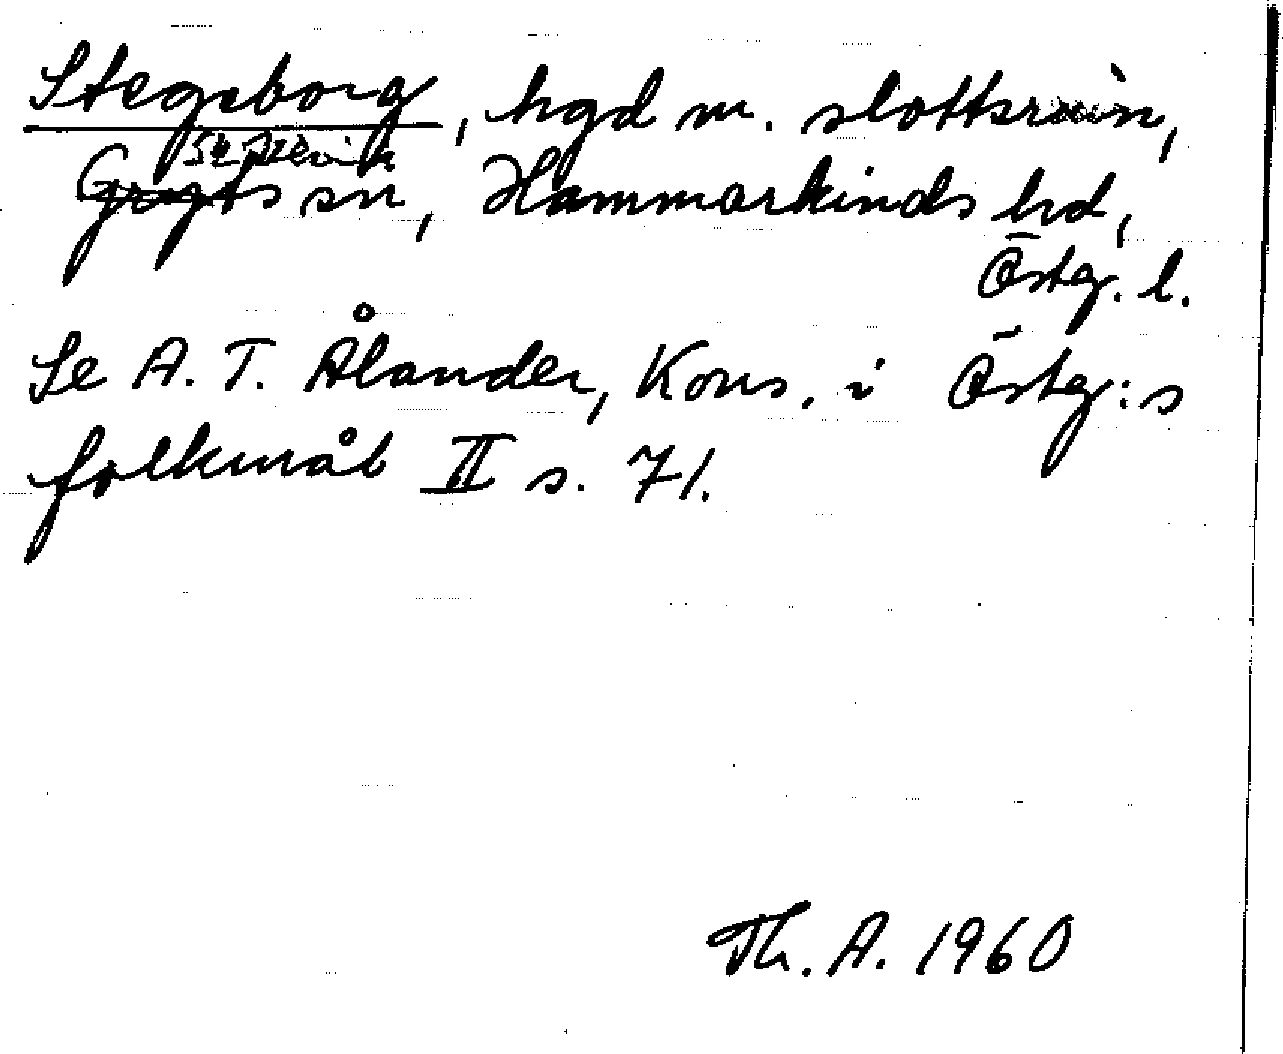 Stegeborg, hgd m. slottsruin,
Skällvik
Gryts sn, Hammarkinds hd,
Östg. l.
Se A. T. Ålander, Kons. i Östg:s
folkmål II s. 71.
Th. A. 1960